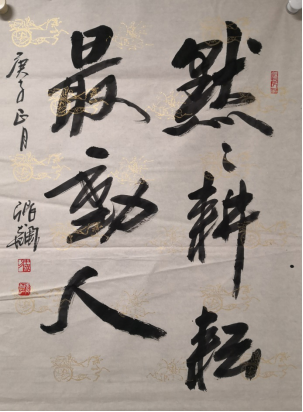 默々耕耘
最動人
庚子正月